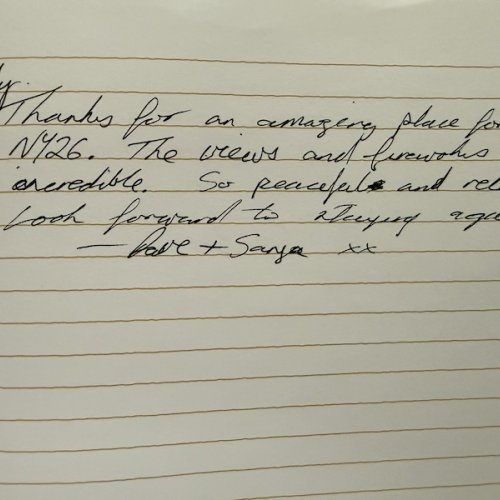 Thanks for an amazing place for
NY26. The views and fireworks
incredible. So peaceful and rel
Look forward to staying aga
— Dave + Sanja xx